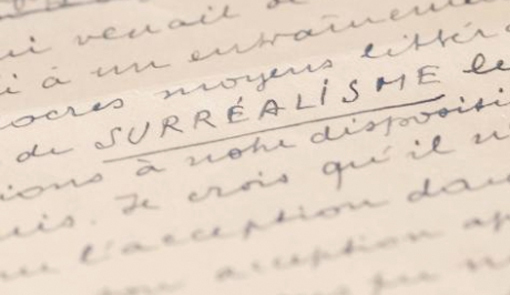 venait d
à un entraînement
moyens littér
de SURRÉALISME le
à notre dispositi
Je crois qu'il n
l'acception dan
acception